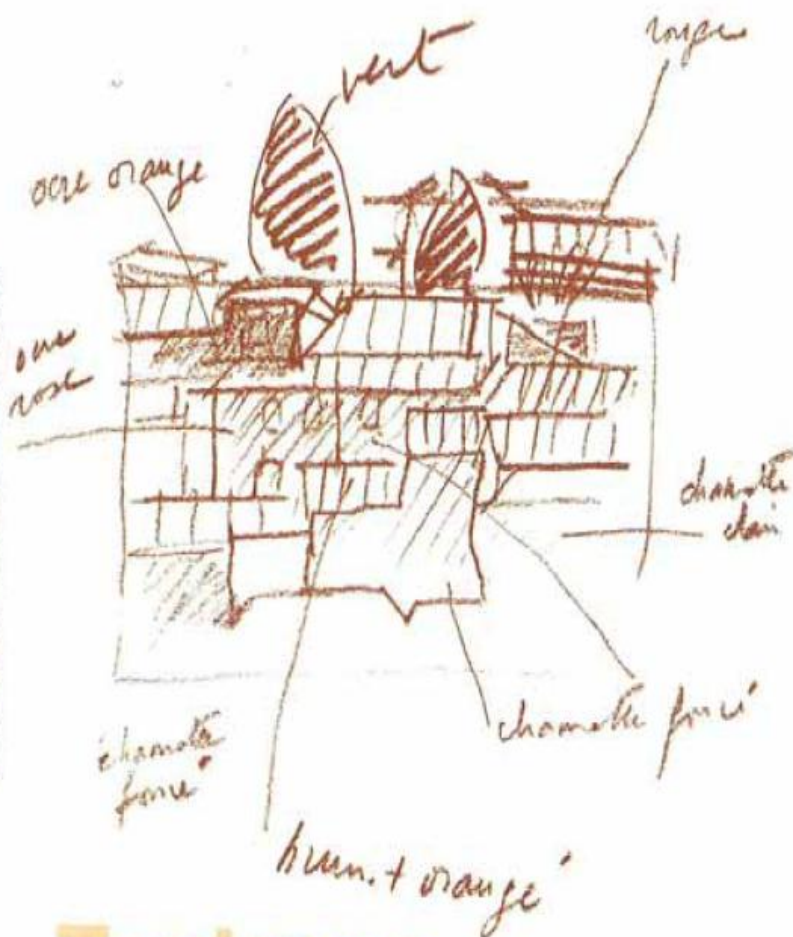 vent
rouge
ocre orange
ocre
rose
chamotte
clair
chamotte foncé
chamotte
foncé
brun + orangé